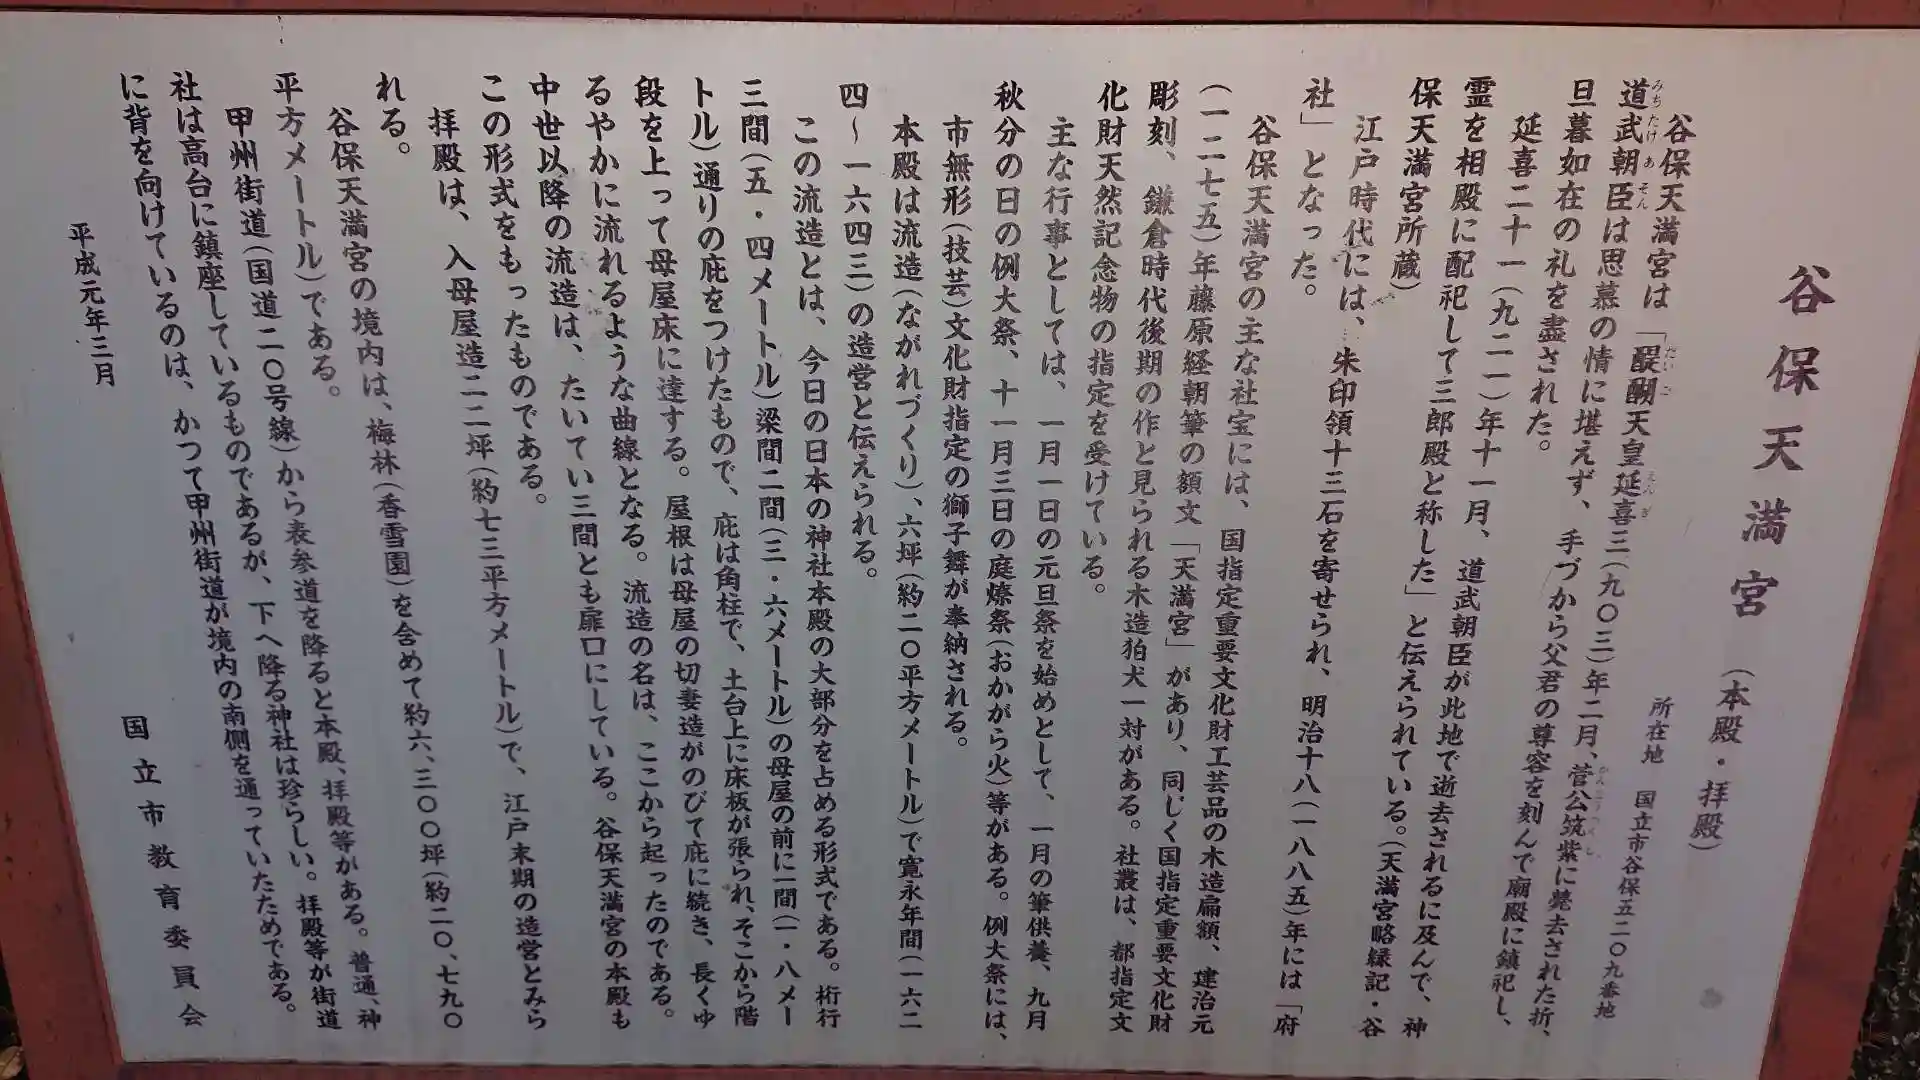 谷保天満宮 (本殿・拝殿)
所在地 国立市谷保五二〇九番地
谷保天満宮は「醍醐天皇延喜三(九〇三)年二月、菅公筑紫に薨去された折、
道武朝臣は思慕の情に堪えず、手づから父君の尊容を刻んで廟殿に鎮祀し、
旦暮如在の礼を盡された。
延喜二十一(九二一)年十一月、道武朝臣が此地で逝去されるに及んで、神
霊を相殿に配祀して三郎殿と称した」と伝えられている。(天満宮略縁記・谷
保天満宮所蔵)
江戸時代には、朱印領十三石を寄せられ、明治十八(一八八五)年には「府
社」となった。
谷保天満宮の主な社宝には、国指定重要文化財工芸品の木造扁額、建治元
(一二七五)年藤原経朝筆の額文「天満宮」があり、同じく国指定重要文化財
彫刻、鎌倉時代後期の作と見られる木造狛犬一対がある。社叢は、都指定文
化財天然記念物の指定を受けている。
主な行事としては、一月一日の元旦祭を始めとして、一月の筆供養、九月
秋分の日の例大祭、十一月三日の庭燎祭(おかがら火)等がある。例大祭には、
市無形(技芸)文化財指定の獅子舞が奉納される。
本殿は流造(ながれづくり)、六坪(約二〇平方メートル)で寛永年間(一六二
四～一六四三)の造営と伝えられる。
この流造とは、今日の日本の神社本殿の大部分を占める形式である。桁行
三間(五・四メートル)梁間二間(三・六メートル)の母屋の前に一間(一・八メー
トル)通りの庇をつけたもので、庇は角柱で、土台上に床板が張られ、そこから階
段を上って母屋床に達する。屋根は母屋の切妻造がのびて庇に続き、長くゆ
るやかに流れるような曲線となる。流造の名は、ここから起ったのである。
中世以降の流造は、たいてい三間とも扉口にしている。谷保天満宮の本殿も
この形式をもったものである。
拝殿は、入母屋造二二坪(約七三平方メートル)で、江戸末期の造営とみら
れる。
谷保天満宮の境内は、梅林(香雪園)を含めて約六、三〇〇坪(約二〇、七九〇
平方メートル)である。
甲州街道(国道二〇号線)から表参道を降ると本殿、拝殿等がある。普通、神
社は高台に鎮座しているものであるが、下へ降る神社は珍らしい。拝殿等が街道
に背を向けているのは、かつて甲州街道が境内の南側を通っていたためである。
平成元年三月
国立市教育委員会